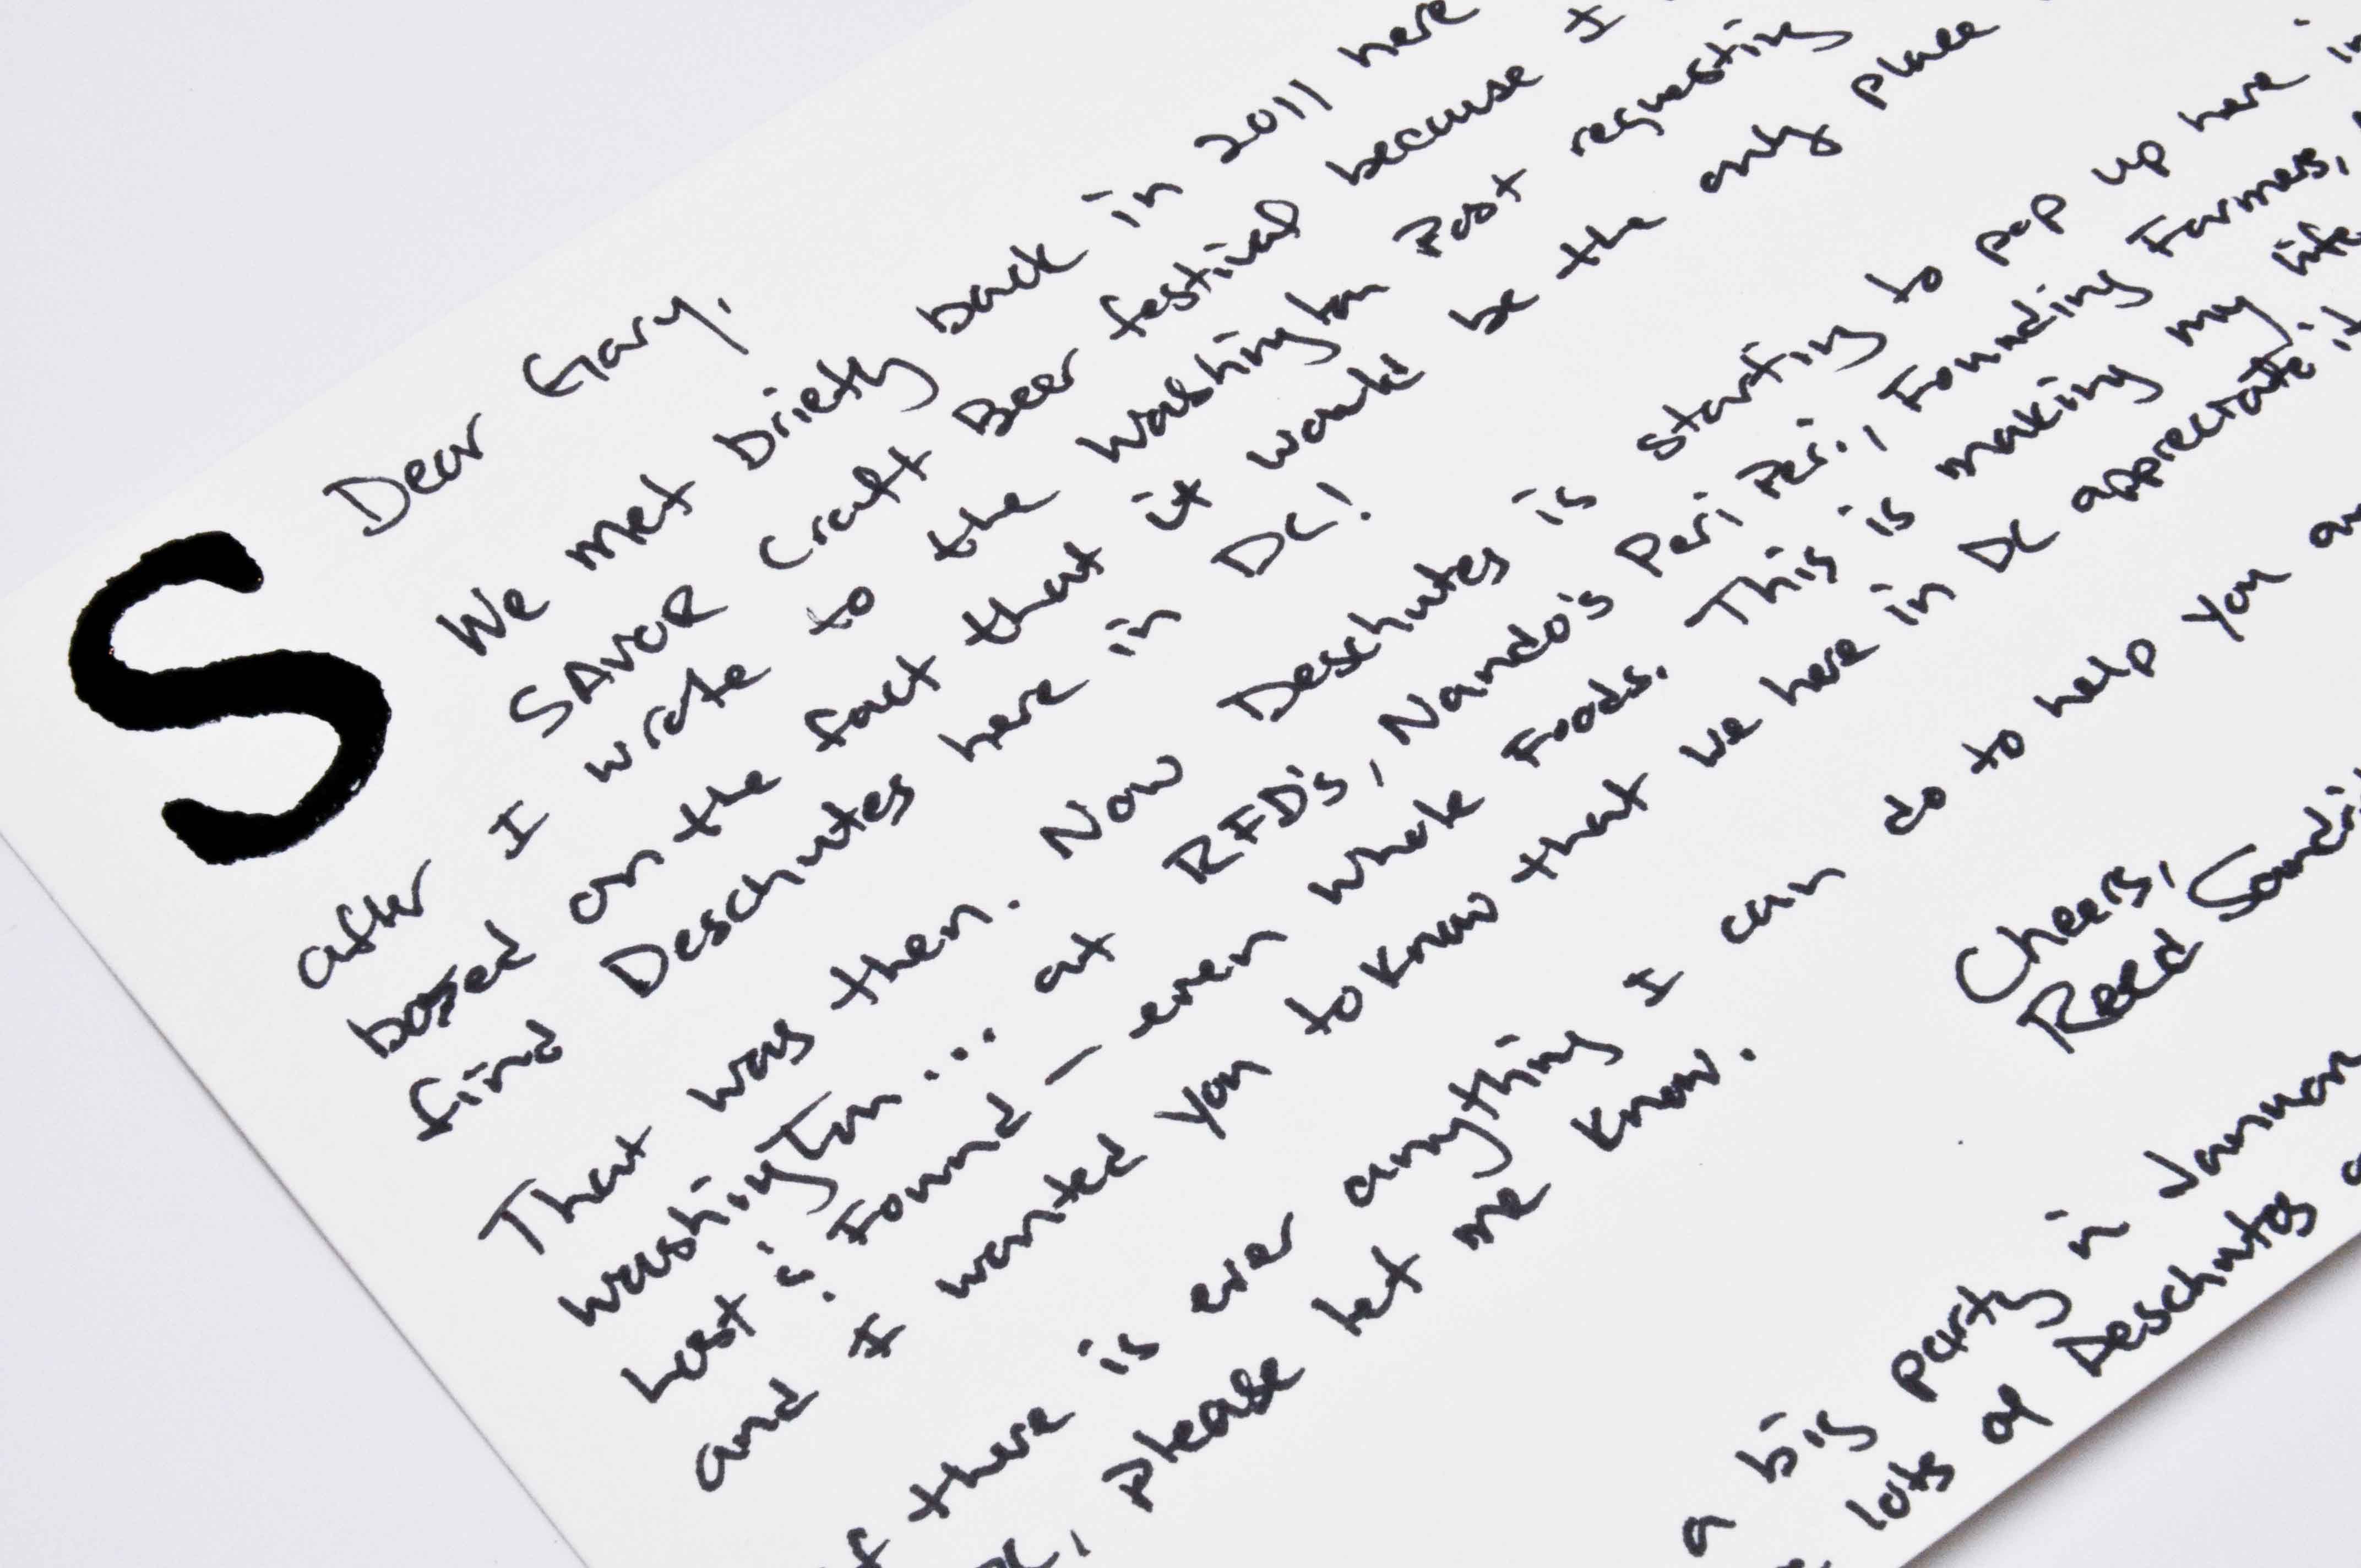 S
Dear Gary,
We met briefly back in 2011 here
SAVOR Craft Beer festival because I
after I wrote to the Washington Post requesting
based on the fact that it would be the only place
find Deschutes here in DC!
That was then. Now Deschutes is starting to pop up here in
Washington... at RFD's, Nando's Peri Peri, Founding Farmers,
Lost & Found – even Whole Foods. This is making my life
and I wanted you to know that we here in DC appreciate it
there is ever anything I can do to help you
please let me know.
Cheers,
Reed
a big party in Januar
lots of Deschutes